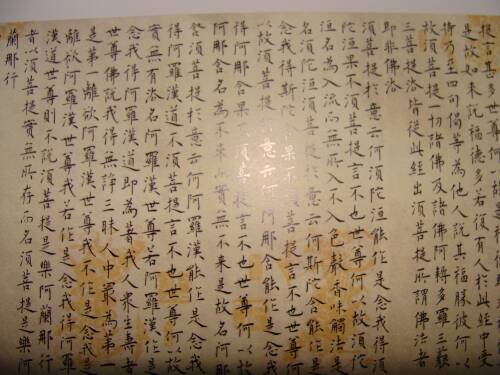 提言甚多世尊何
是故如来說福德多若復有人於此經中受
持乃至四句偈等為他人說其福勝彼何以
故須菩提一切諸佛及諸佛阿耨多羅三藐
三菩提法皆從此經出須菩提所謂佛法者
即非佛法
須菩提於意云何須陀洹能作是念我得須
陀洹果不須菩提言不也世尊何以故須陀
洹名為入流而無所入不入色聲香味觸法是
名須陀洹須菩提於意云何斯陀含能作是
念我得斯陀 果不須菩提言不也世尊何
以故須菩提 意云何阿那含能作是念我
得阿那含果不須菩提言不也世尊何以故
阿那含名為不來而實無不來是故名阿那
含須菩提於意云何阿羅漢能作是念我
得阿羅漢道不須菩提言不也世尊何以故
實無有法名阿羅漢世尊若阿羅漢作是
念我得阿羅漢道即為著我人衆生壽者
世尊佛說我得無諍三昧人中最為第一
是第一離欲阿羅漢世尊我不作是念我是
離欲阿羅漢世尊我若作是念我得阿羅
漢道世尊則不說須菩提是樂阿蘭那行
者以須菩提實無所存而名須菩提是樂阿
蘭那行